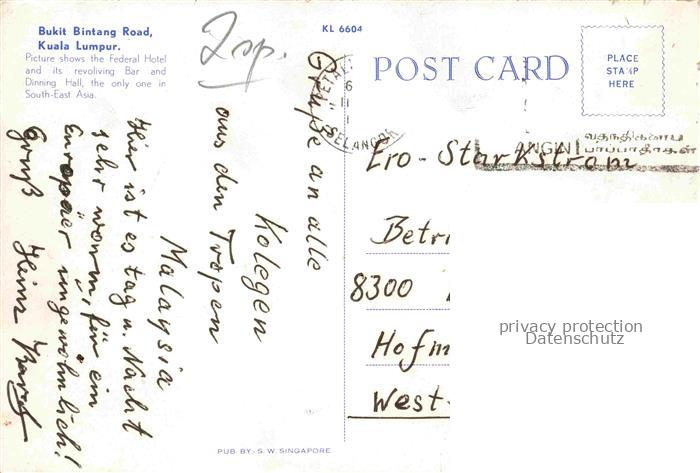 Bukit Bintang Road,
Kuala Lumpur.
Picture shows the Federal Hotel
and its revolving Bar and
Dinning Hall, the only one in
South-East Asia.
KL 6604
POST CARD
PLACE
STAMP
HERE
SELANGOR
ANGIN
வதந்திகளைப்
பரப்பாதீர்கள்
Grüße an alle
Kolegen
aus den Tropen
Malaysia
Hier ist es tag u. Nacht
sehr warm, für ein
Europäer ungewöhnlich!
Gruß Heinz
Ero-Starkstrom
Betri
8300
Hofm
West-
privacy protection
Datenschutz
PUB. BY.- S. W. SINGAPORE